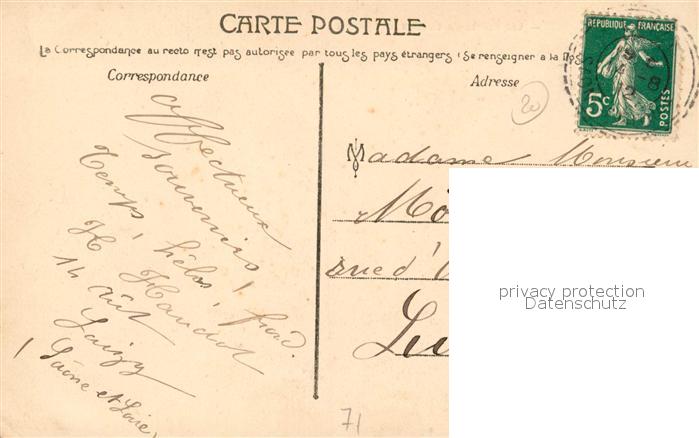 CARTE POSTALE
La Correspondance au recto n'est pas autorisée par tous les pays étrangers (Se renseigner à la Pos
Correspondance
Adresse
RÉPUBLIQUE FRANÇAISE
5c
POSTES
20
affectueux
souvenirs!
Temps, hélas! froid.
H
14 août
Laizy
(Saône et Loire)
Madame Monsieur
rue d'
71
privacy protection
Datenschutz